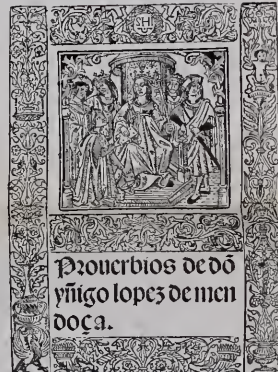 IHS
Prouerbios de dõ
yñigo lopez de men
doça.